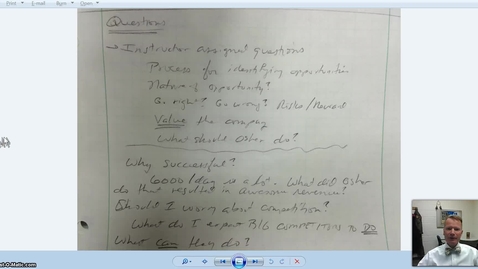 Print
E-mail
Burn
Open
Questions
→ Instructor assignment questions
Process for identifying opportunities
Nature of opportunity?
Go right? Go wrong? Risk/Reward
Value the company
What should Osher do?
Why successful?
6000/day is a lot. What did Osher
do that resulted in awesome revenue?
Should I worry about competition?
What do I expect BIG competitors to DO
What can they do?